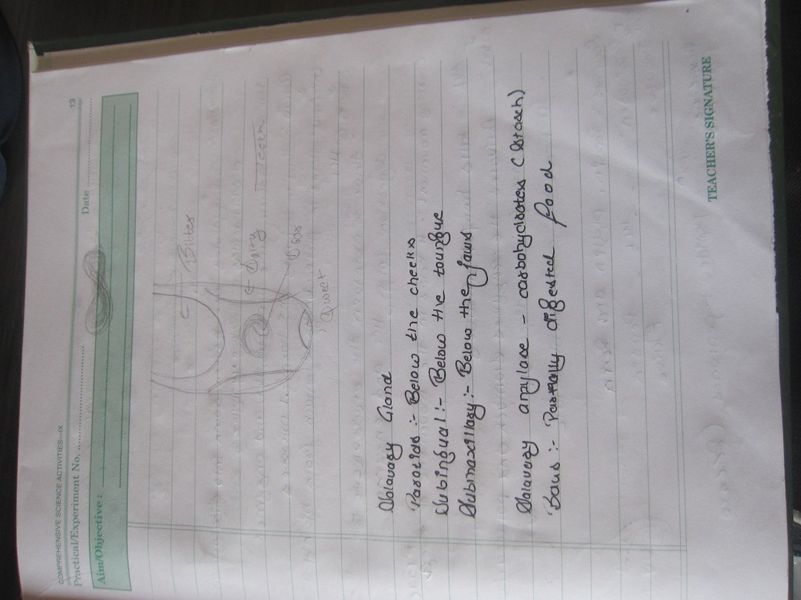 COMPREHENSIVE SCIENCE ACTIVITIES—IX
13
Practical/Experiment No.
Date
Aim/Objective :
Bitter
Teeth
Salavary Gland
Parotids :- Below the cheeks
Subingual :- Below the toungue
Submaxillary :- Below the jaws
Salavary amylase - carbohydrates (starch)
Partially digested food
TEACHER'S SIGNATURE